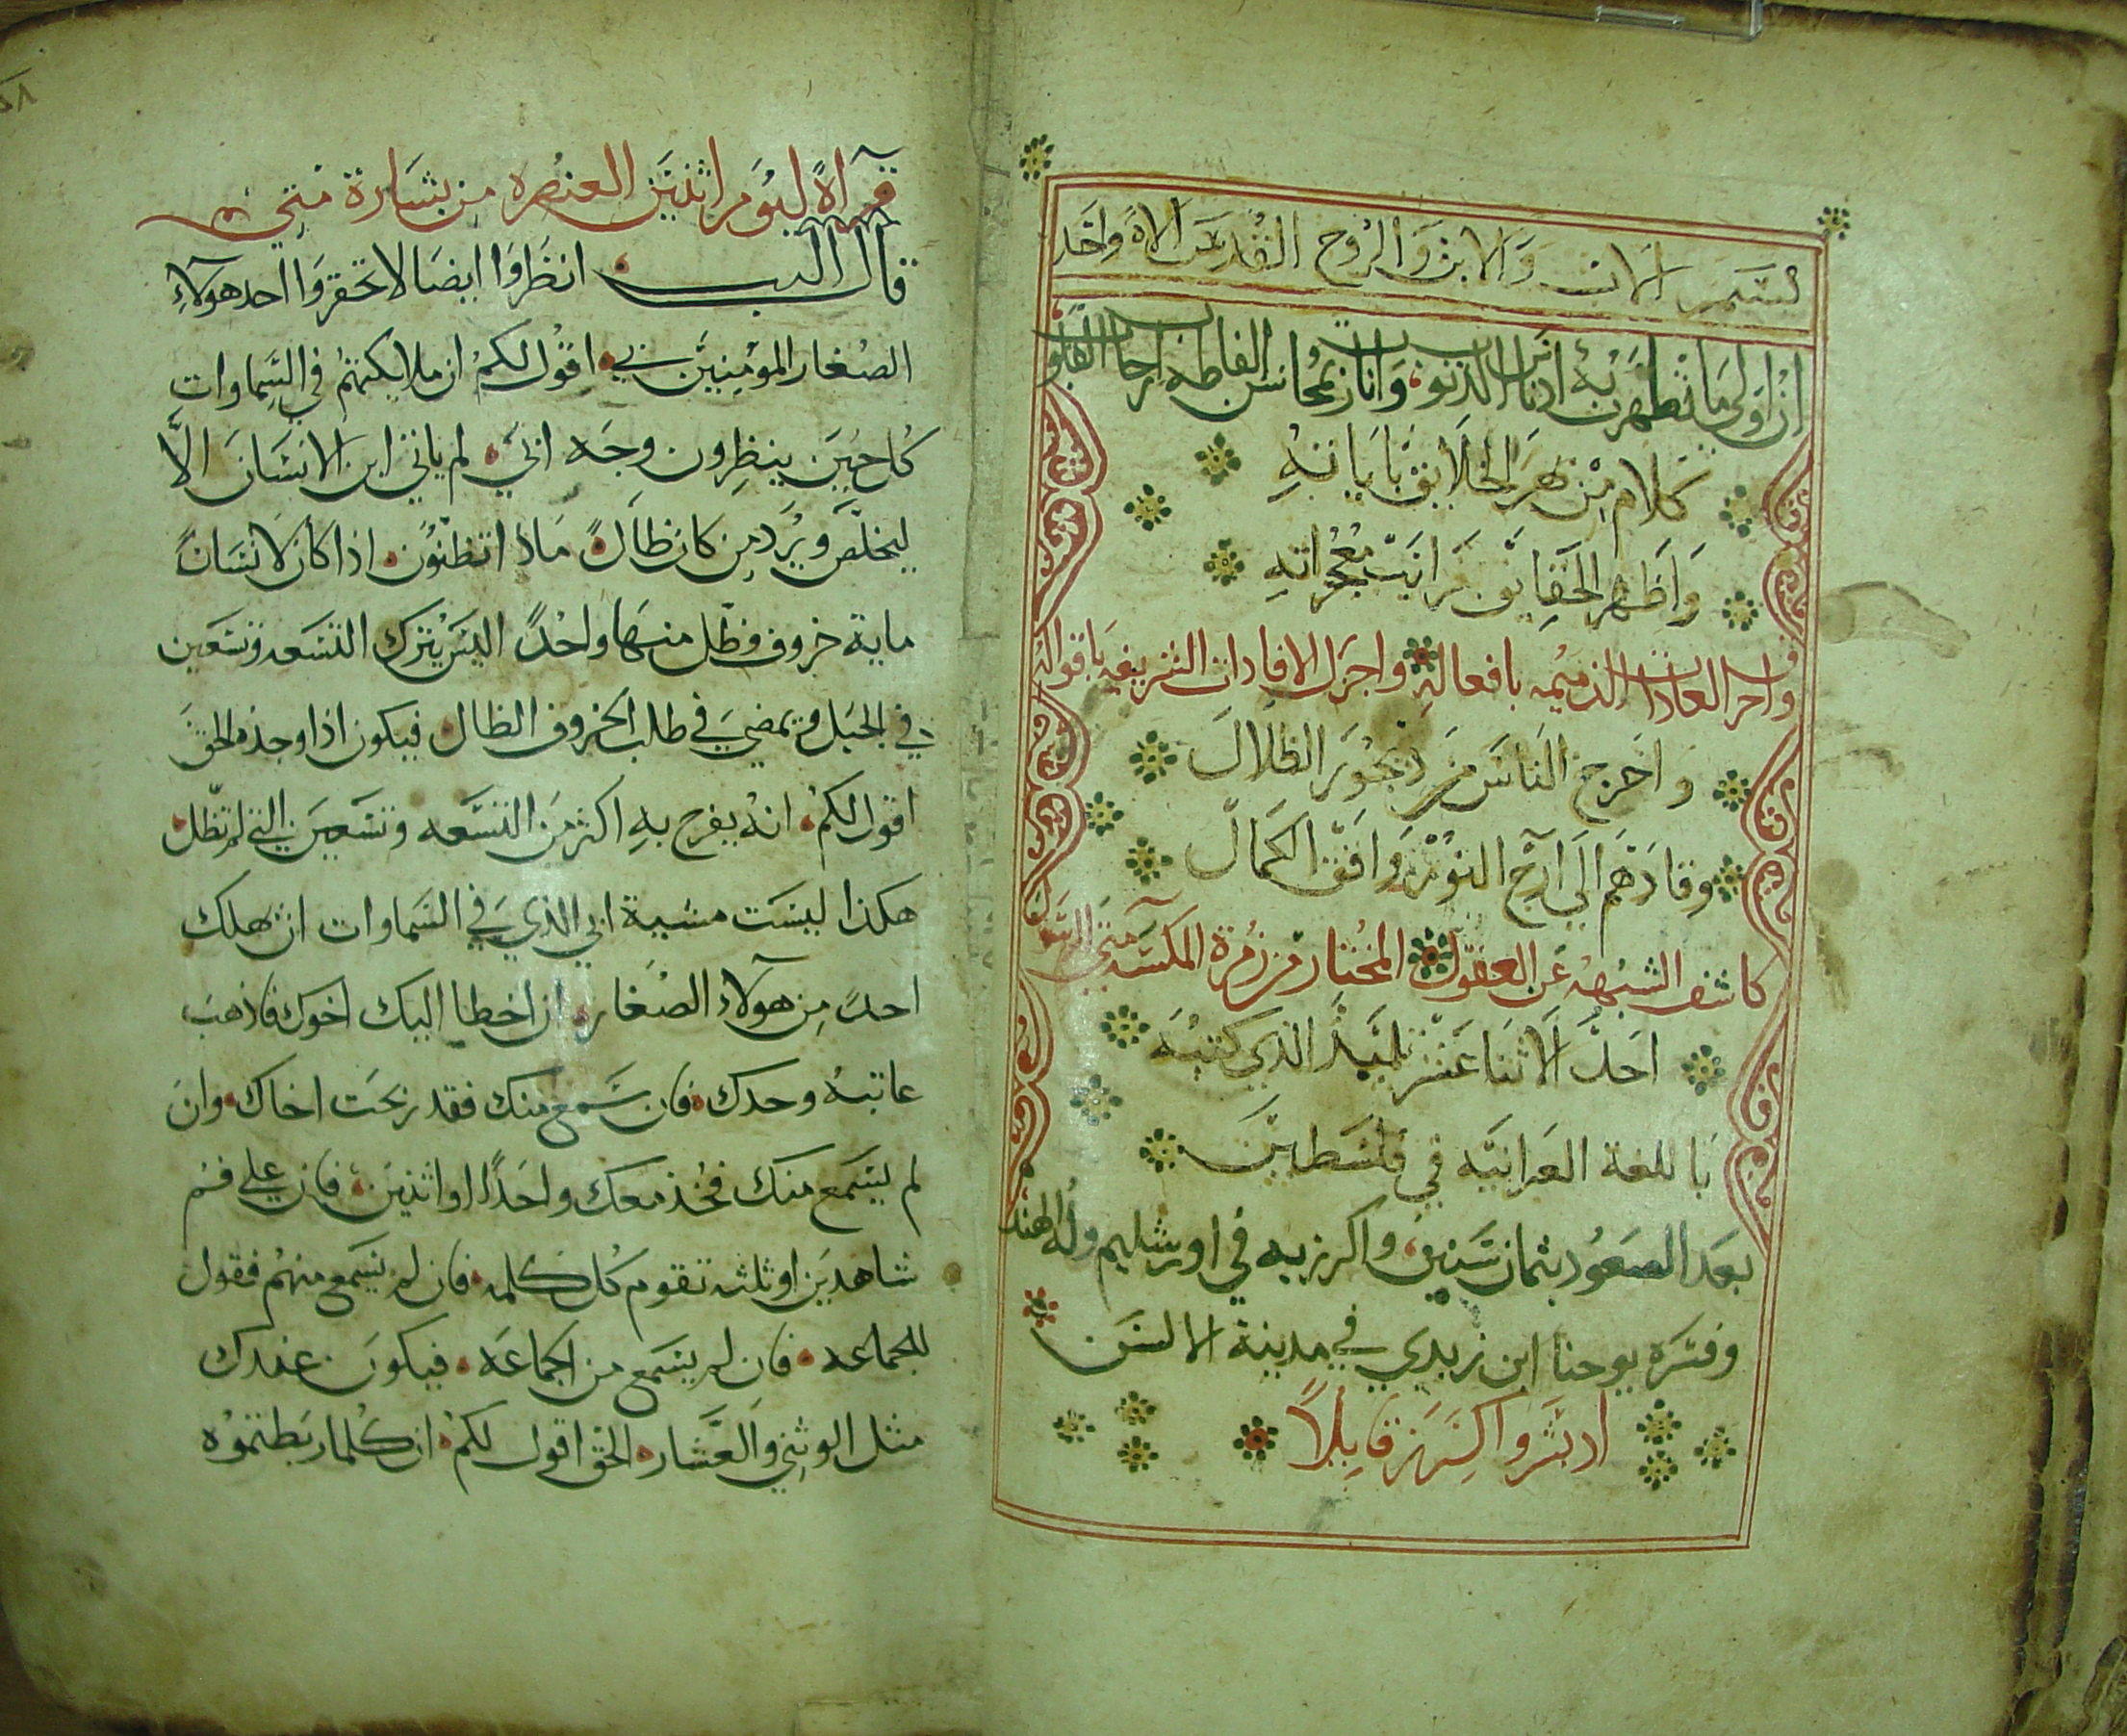 بسم الاب والابن والروح القدس الاه واحد
ان اولى ما تطهرت به ادناس الذنوب وانارت بمجانس الفاظه ارجات القلوب
كلام من ظهر الخلايق باياته
واظهر الحقايق معجزاته
واخر العادات الذميمه بافعاله واجزل الافادات الشريفه باقواله
واخرج الناس من ديجور الظلال
وقادهم الى اوج النور وافق الكمال
كاشف الشبهه عن العقول المختار من زمرة المكسه متي الرسول
احد الاثنا عشر تلميذ الذي كتبه
باللغة العبرانيه في فلسطين
بعد الصعود بثمان سنين واكرز به في اورشليم والهند
وفسره يوحنا ابن زبدي في مدينة الالسن
قايلا
٥٨
قرآاة ليوم اثنين العنصره من بشارة متي
قال الرب انظروا ايضا لا تحقروا احد هولاء
الصغار المومنين بي اقول لكم ان ملايكتهم في السماوات
كل حين ينظرون وجه ابي لم ياتي ابن الانسان الا
ليخلص ويرد من كان ظال ماذا تظنون اذا كان لانسان
ماية خروف وظل منها واحد اليس يترك التسعه وتسعين
في الجبل ويمضي في طلب الخروف الظال فيكون اذا وجده الحق
اقول لكم انه يفرح به اكثر من التسعه وتسعين التي لم تظل
هكذا ليست مشية ابي الذي في السماوات ان يهلك
احد من هولاء الصغار ان اخطا اليك اخوك فاذهب
عاتبه وحدك فان سمع منك فقد ربحت اخاك وان
لم يسمع منك فخذ معك واحدا او اثنين فان على فم
شاهدين او ثلثه تقوم كل كلمه فان لم يسمع منهم فقول
للجماعه فان لم يسمع من الجماعه فيكون عندك
مثل الوثني والعشار الحق اقول لكم ان كلما ربطتموه